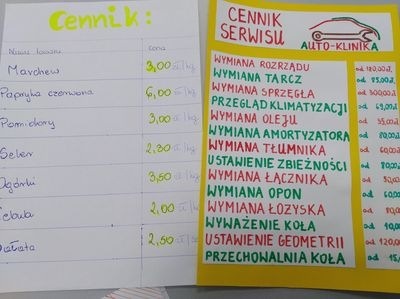 Cennik:
Nazwa towaru cena
Marchew 3,00 zł/kg
Papryka czerwona 6,00 zł/kg
Pomidory 3,00 zł/kg
Seler 2,80 zł/kg
Ogórki 3,50 zł/kg
Cebula 2,00 zł/kg
Sałata 2,50
CENNIK
SERWISU
AUTO-KLINIKA
WYMIANA ROZRZĄDU od 180,00zł.
WYMIANA TARCZ od 85,00zł.
WYMIANA SPRZĘGŁA od 300,00zł
PRZEGLĄD KLIMATYZACJI od 69,00zł
WYMIANA OLEJU od 35,00zł
WYMIANA AMORTYZATORA od 80,00zł
WYMIANA TŁUMNIKA od 60,00zł
USTAWIENIE ZBIEŻNOŚCI od 80,00
WYMIANA ŁĄCZNIKA od
WYMIANA OPON od 60,00
WYMIANA ŁOŻYSKA od 80,00
WYWAŻENIE KOŁA od 10,00
USTAWIENIE GEOMETRII od 120,00
PRZECHOWALNIA KOŁA od 15,